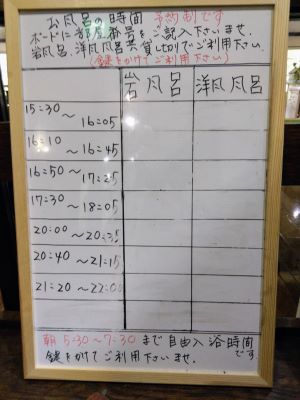 お風呂の時間 予約制です
ボードに部屋番号をご記入下さいませ。
岩風呂、洋風風呂共、貸し切りでご利用下さい。
(鍵をかけてご利用下さい)
岩風呂 洋風風呂
15:30~16:05
16:10~16:45
16:50~17:25
17:30~18:05
20:00~20:35
20:40~21:15
21:20~22:00
朝 5:30~7:30 まで自由入浴時間です
鍵をかけてご利用下さいませ。